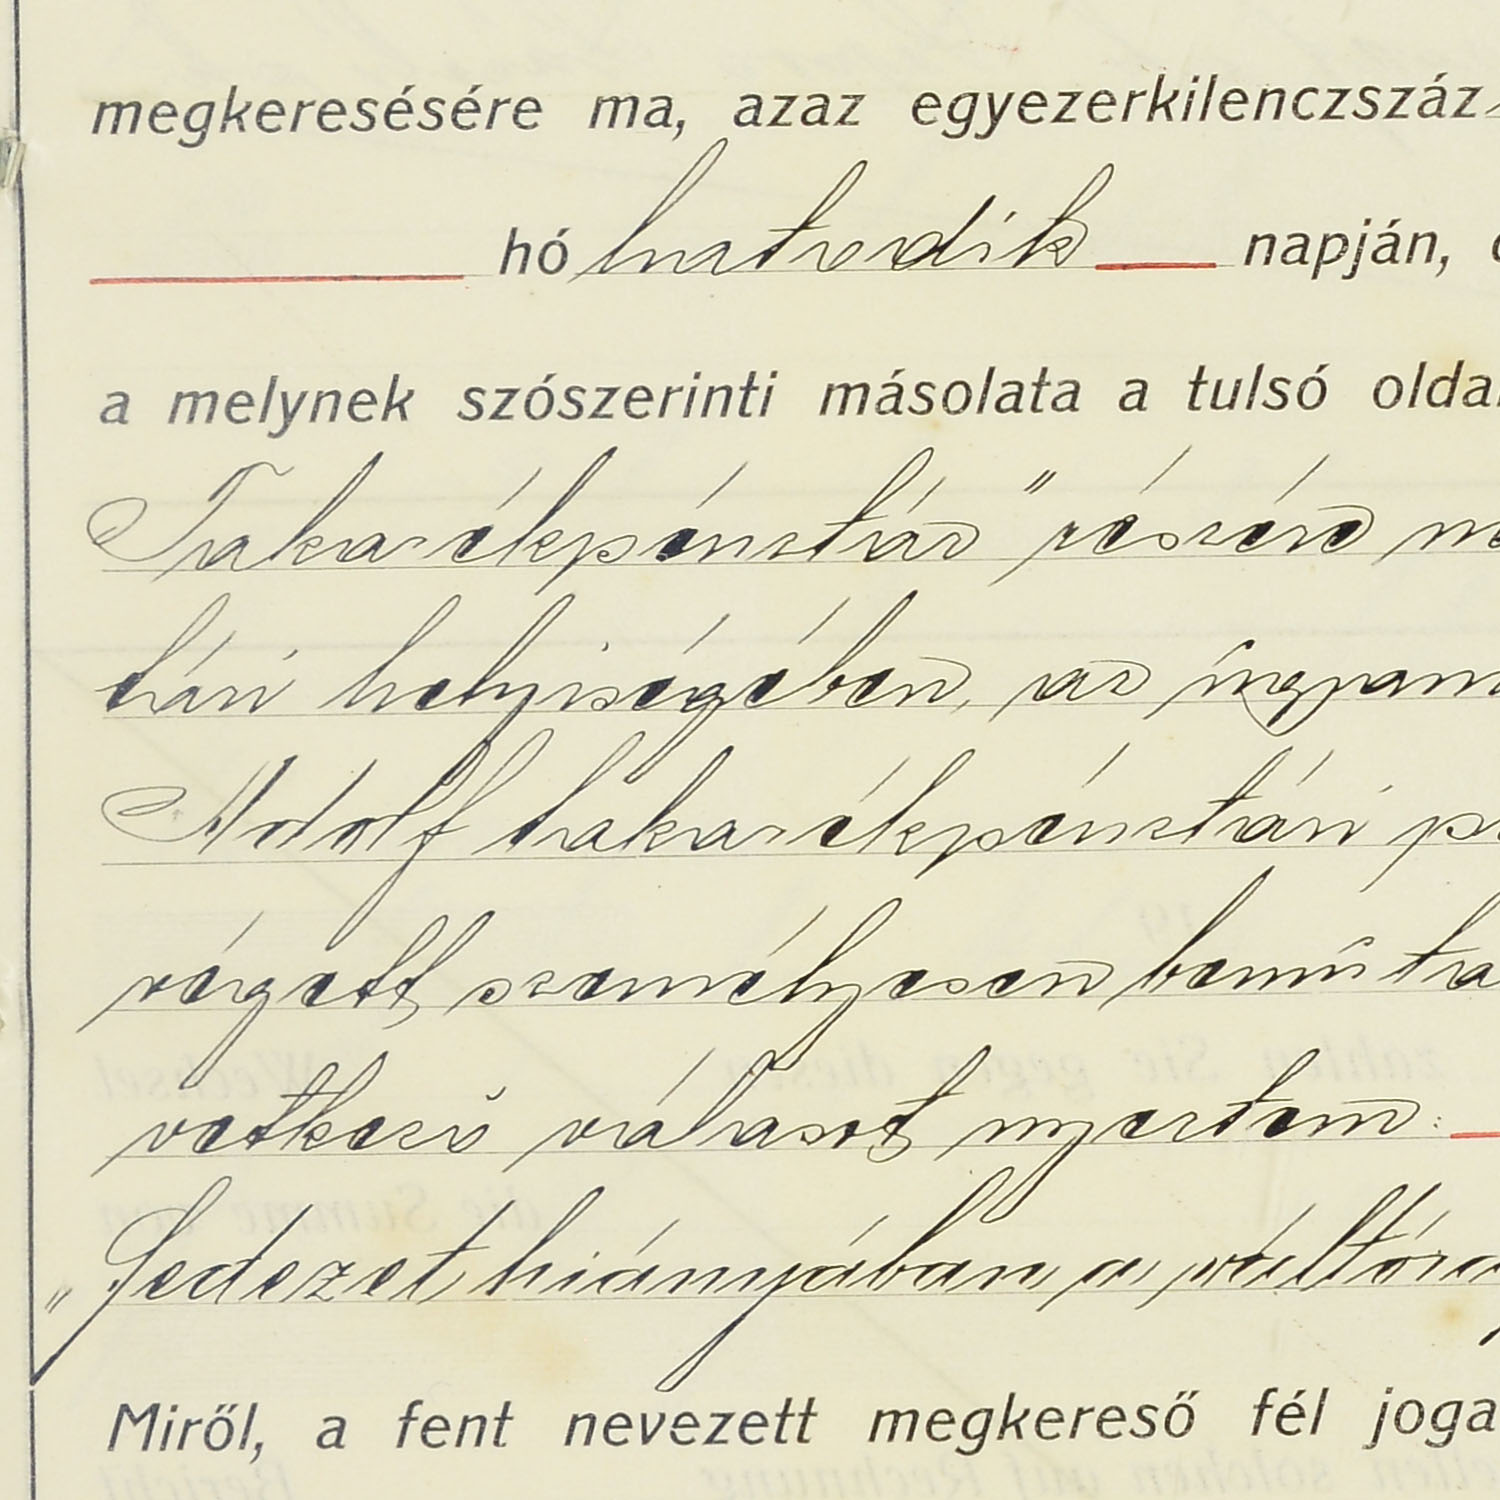 megkeresésére ma, azaz egyezerkilenczszáz
hó hatodik napján,
a melynek szószerinti másolata a tulsó oldal
Takarékpénztár" részére
tári helyiségében, az
Adolf takarékpénztári
végett személyesen
vetkező választ nyertem:
„Fedezet hiányában a
Miről, a fent nevezett megkereső fél joga